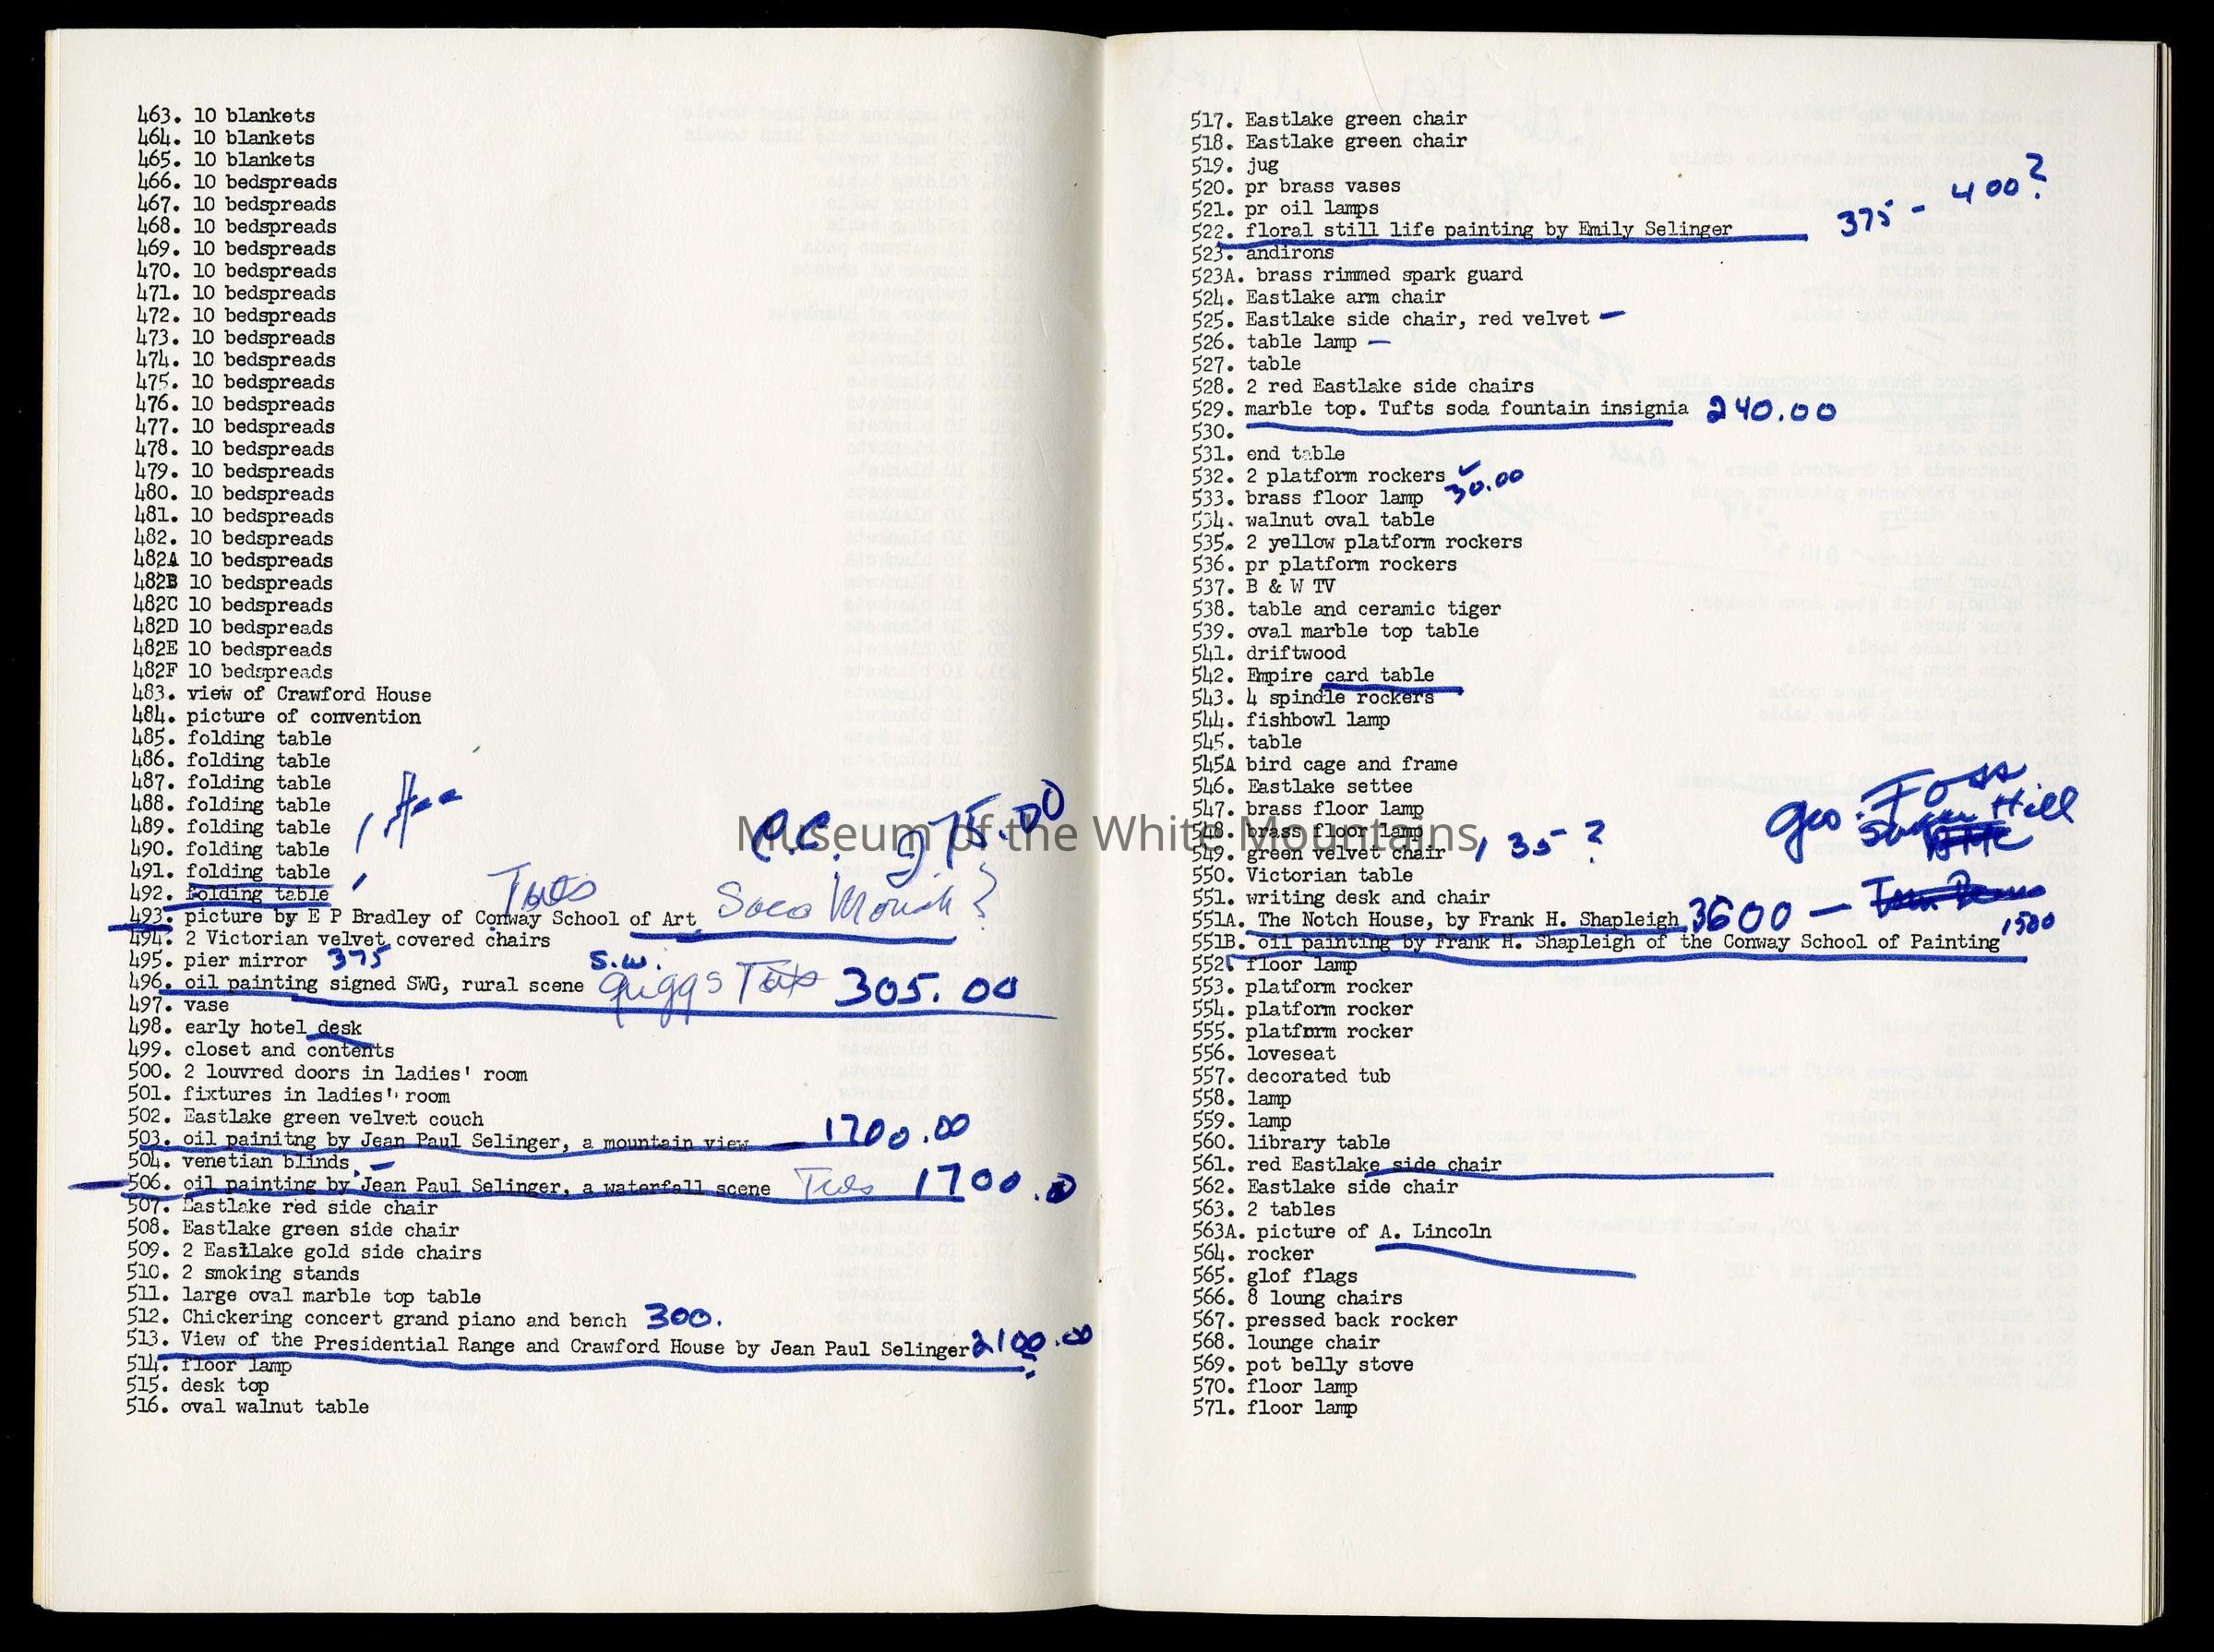 463. 10 blankets
464. 10 blankets
465. 10 blankets
466. 10 bedspreads
467. 10 bedspreads
468. 10 bedspreads
469. 10 bedspreads
470. 10 bedspreads
471. 10 bedspreads
472. 10 bedspreads
473. 10 bedspreads
474. 10 bedspreads
475. 10 bedspreads
476. 10 bedspreads
477. 10 bedspreads
478. 10 bedspreads
479. 10 bedspreads
480. 10 bedspreads
481. 10 bedspreads
482. 10 bedspreads
482A 10 bedspreads
482B 10 bedspreads
482C 10 bedspreads
482D 10 bedspreads
482E 10 bedspreads
482F 10 bedspreads
483. view of Crawford House
484. picture of convention
485. folding table
486. folding table
487. folding table
488. folding table
489. folding table
490. folding table
P.C. 275.00
491. folding table
492. folding table
493. picture by E P Bradley of Conway School of Art
494. 2 Victorian velvet covered chairs
495. pier mirror 375
S.W.
496. oil painting signed SWG, rural scene Griggs 305.00
497. vase
498. early hotel desk
499. closet and contents
500. 2 louvred doors in ladies' room
501. fixtures in ladies' room
502. Eastlake green velvet couch
503. oil painitng by Jean Paul Selinger, a mountain view 1700.00
504. venetian blinds
506. oil painting by Jean Paul Selinger, a waterfall scene 1700.0
507. Eastlake red side chair
508. Eastlake green side chair
509. 2 Eastlake gold side chairs
510. 2 smoking stands
511. large oval marble top table
512. Chickering concert grand piano and bench 300.
513. View of the Presidential Range and Crawford House by Jean Paul Selinger 2100.00
514. floor lamp
515. desk top
516. oval walnut table
517. Eastlake green chair
518. Eastlake green chair
519. jug
520. pr brass vases
521. pr oil lamps
522. floral still life painting by Emily Selinger 375 - 400?
523. andirons
523A. brass rimmed spark guard
524. Eastlake arm chair
525. Eastlake side chair, red velvet —
526. table lamp —
527. table
528. 2 red Eastlake side chairs
529. marble top. Tufts soda fountain insignia 240.00
530.
531. end table
532. 2 platform rockers ✓ 30.00
533. brass floor lamp
534. walnut oval table
535. 2 yellow platform rockers
536. pr platform rockers
537. B & W TV
538. table and ceramic tiger
539. oval marble top table
541. driftwood
542. Empire card table
543. 4 spindle rockers
544. fishbowl lamp
545. table
545A bird cage and frame
546. Eastlake settee
547. brass floor lamp
548. brass floor lamp
549. green velvet chair 135?
Geo. Foss
Sugar Hill
550. Victorian table
551. writing desk and chair
551A. The Notch House, by Frank H. Shapleigh 3600 —
551B. oil painting by Frank H. Shapleigh of the Conway School of Painting 1500
552. floor lamp
553. platform rocker
554. platform rocker
555. platform rocker
556. loveseat
557. decorated tub
558. lamp
559. lamp
560. library table
561. red Eastlake side chair
562. Eastlake side chair
563. 2 tables
563A. picture of A. Lincoln
564. rocker
565. glof flags
566. 8 loung chairs
567. pressed back rocker
568. lounge chair
569. pot belly stove
570. floor lamp
571. floor lamp
Museum of the White Mountains